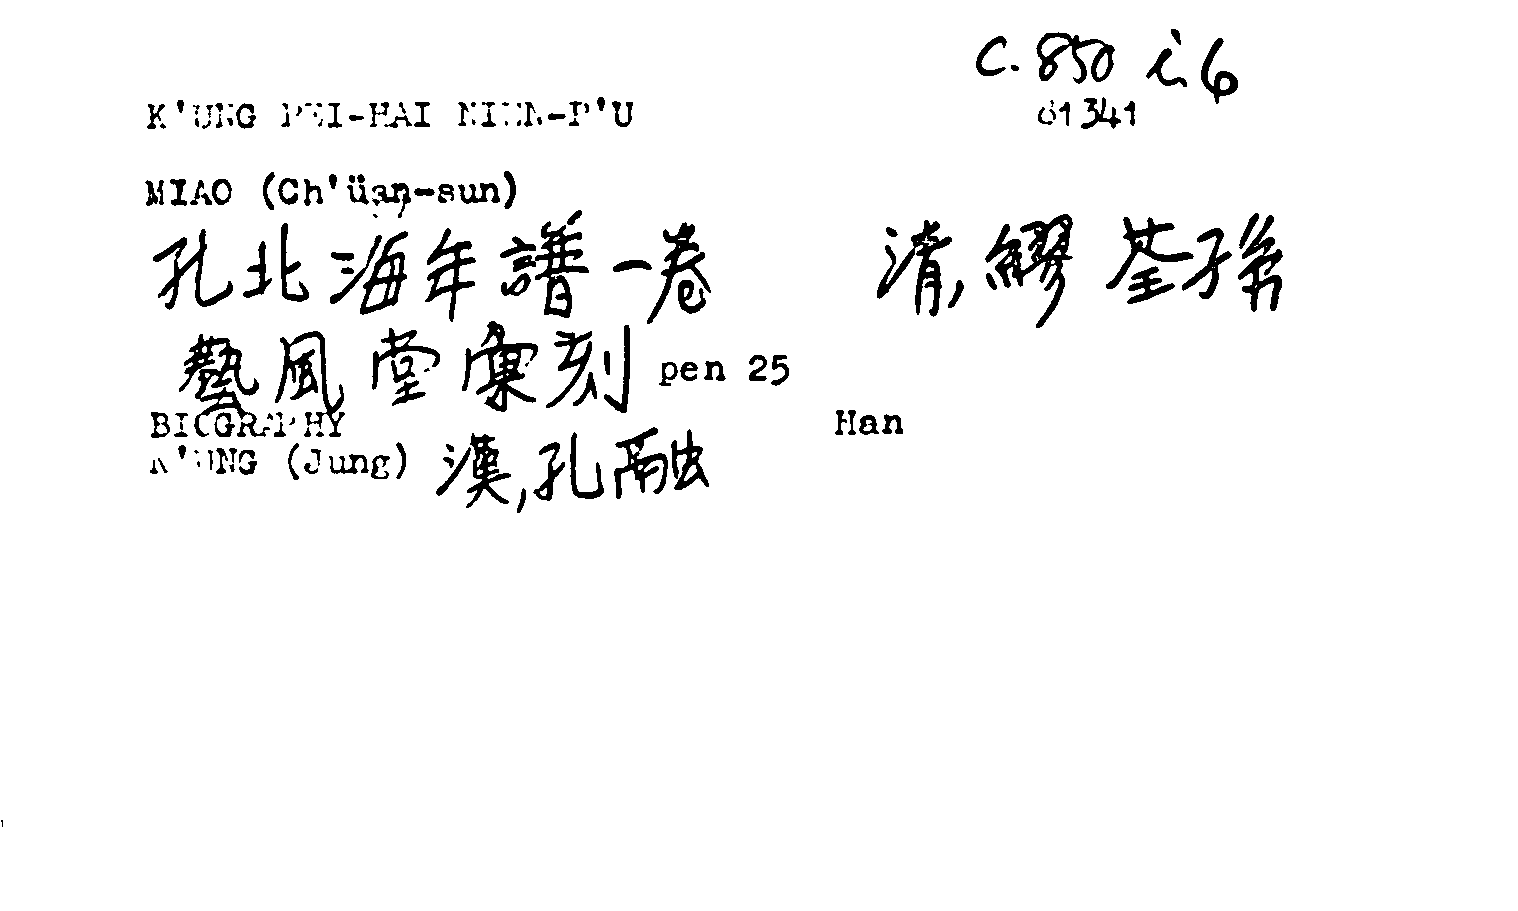 C. 850 i 6
K'UNG PEI-HAI NIEN-P'U 61341
MIAO (Ch'üan-sun)
孔北海年譜一卷 清,繆荃孫
藝風堂彙刻 pen 25
BIOGRAPHY Han
K'UNG (Jung) 漢,孔融